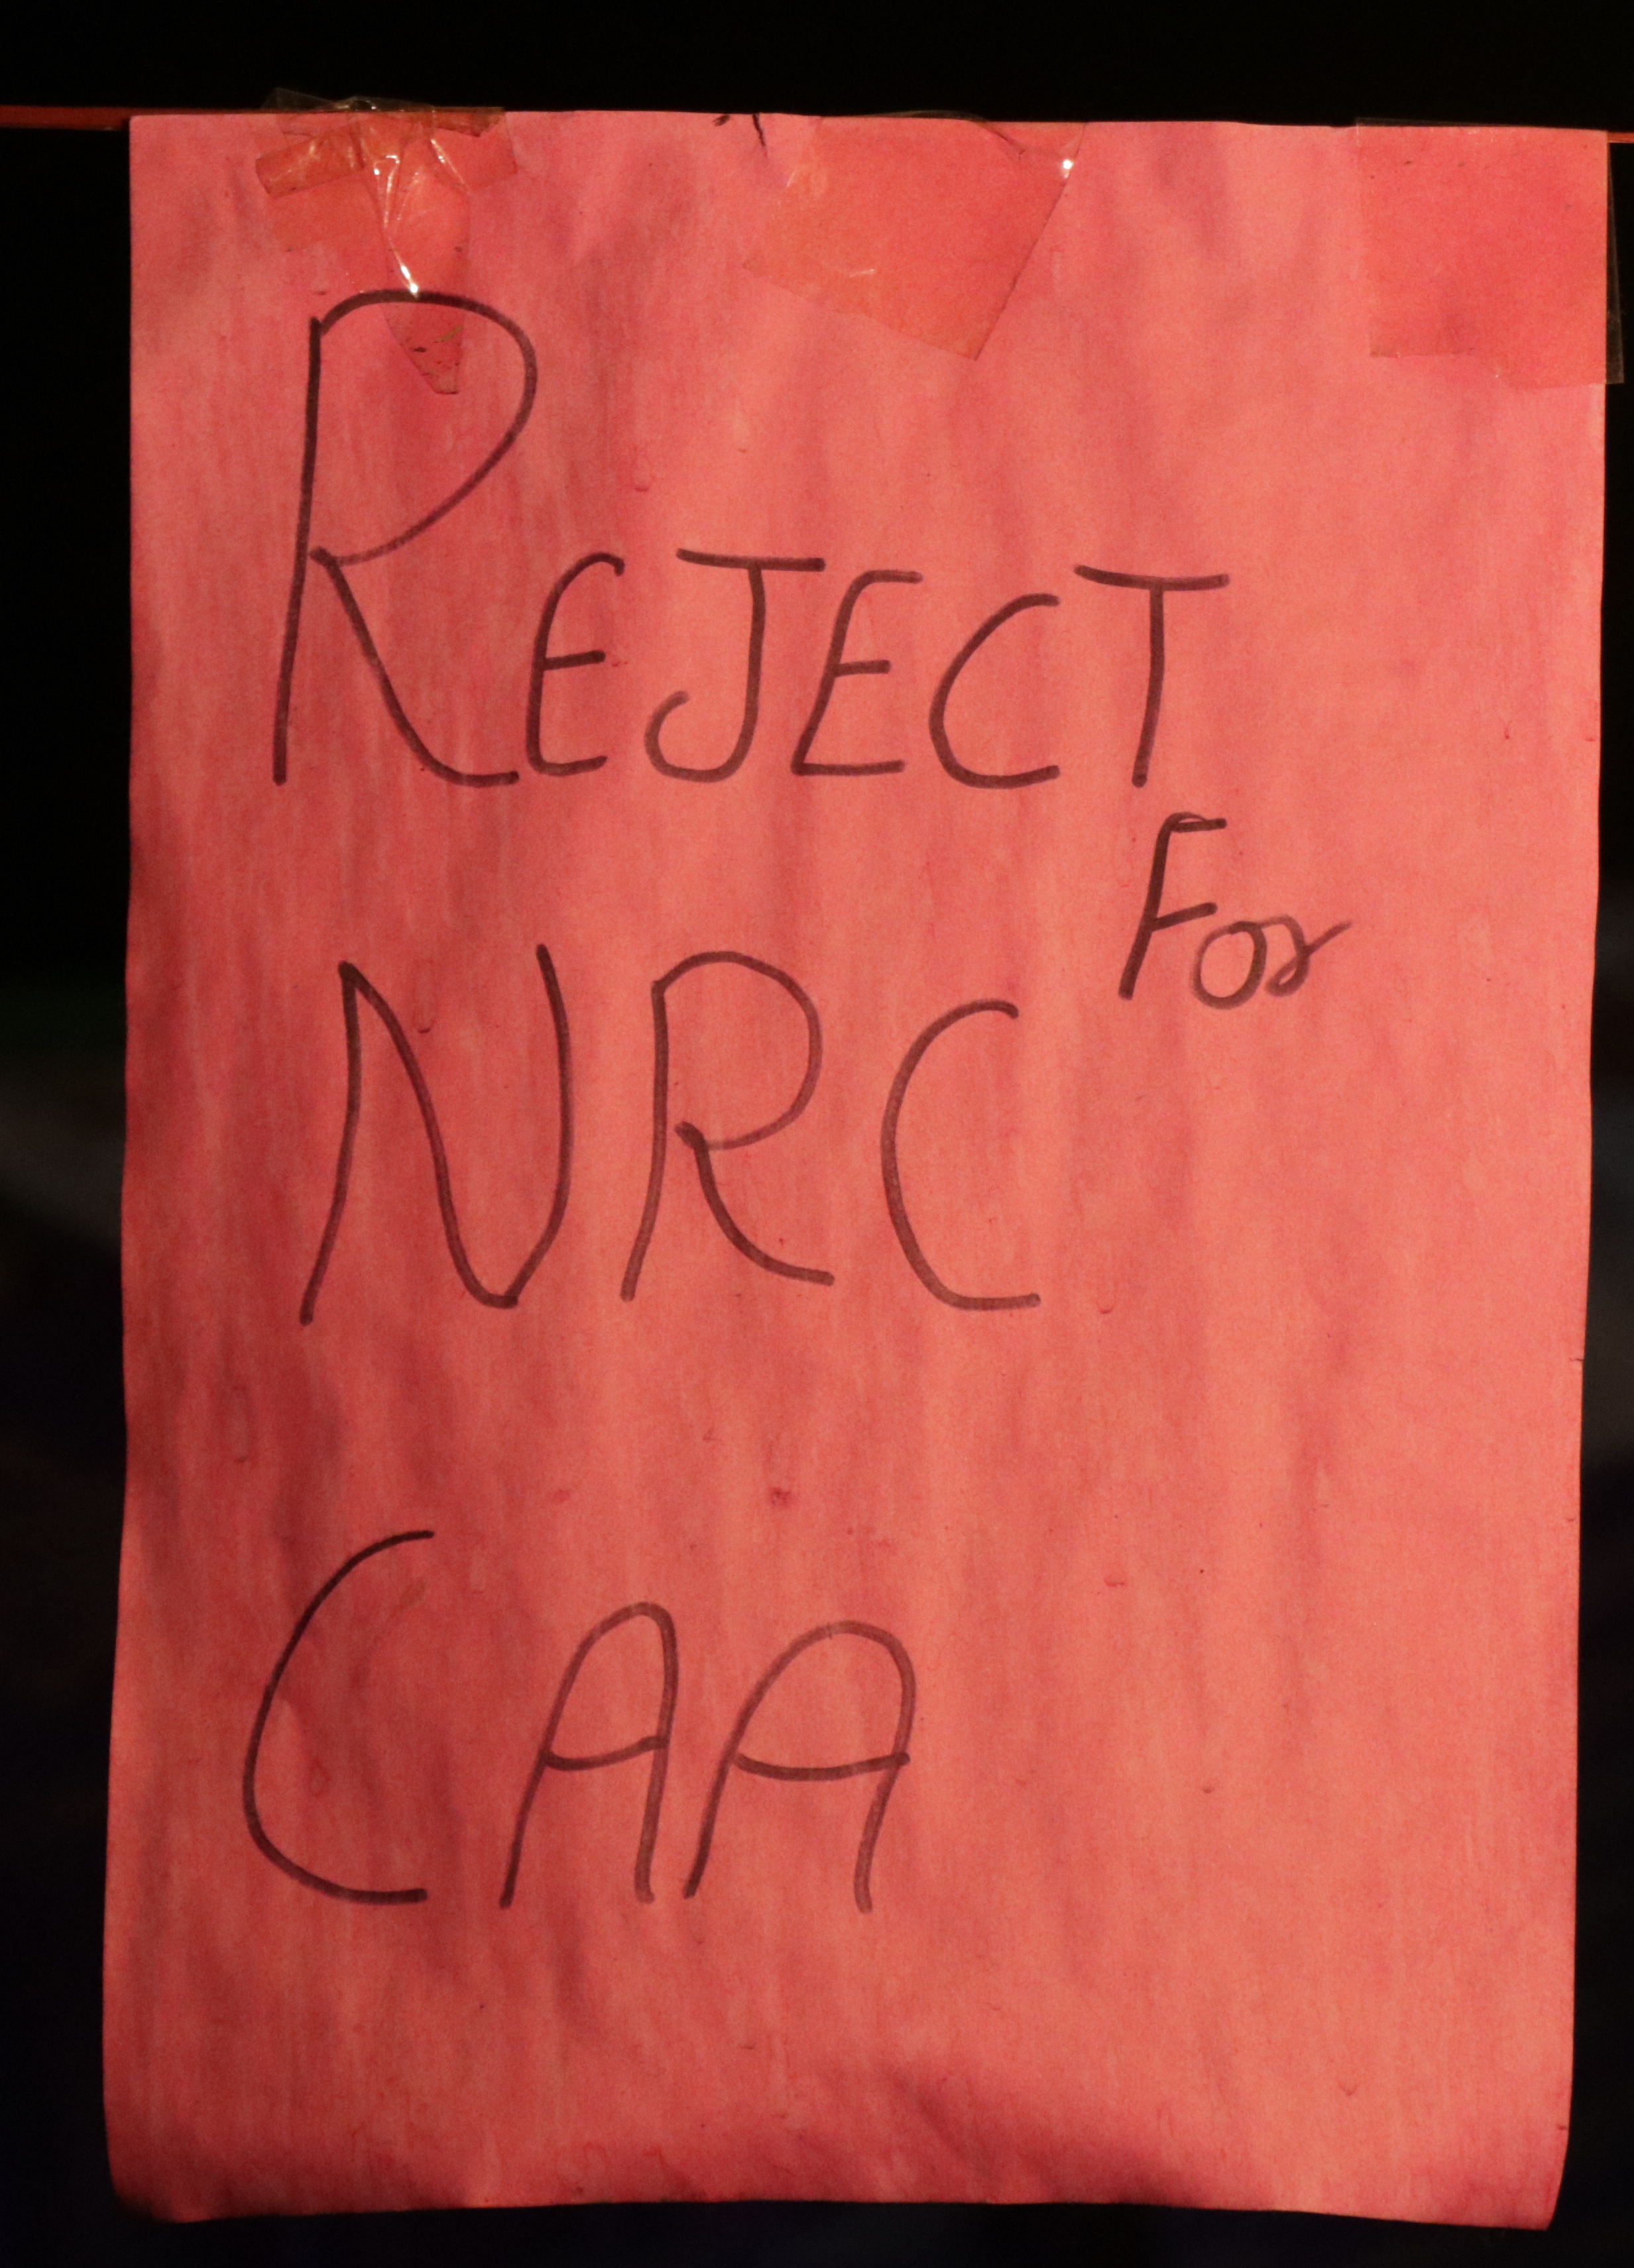 REJECT
For
NRC
CAA